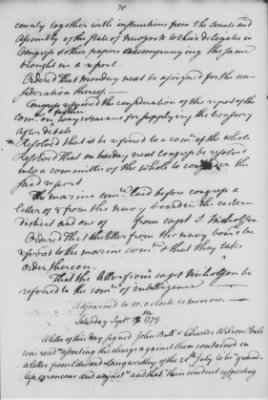 county together with instructions from the Senate and
Assembly of the State of New york to their delegates in
Congress & other papers accompanying the same
brought in a report
Ordered That monday next be assigned for the con-
sideration thereof.—
Congress resumed the consideration of the report of the
comee on ways & means for supplying the treasury
After debate
Resolved that it be referred to a comee of the whole
Resolved That on tuesday next congress be resolved
into a committee of the whole to consider the
said report
The marine comee laid before congress a
letter of from the navy board in the eastern
district and one of from capt S. Nicholson
Ordered That the letter from the navy board be
referred to the marine comee & that they take
order thereon.
That the letter from capt Nicholson be
referred to the comee of intelligence
Adjourned to 10. o Clock to morrow.—
Saturday Septr 18th 1779
A letter of this day signed John Bull & Charles Wilson Peale
was read asserting the charge against them contained in
a letter from Edward Langworthy of the 26th July to be "ground-
less, erroneous and unjust" and that their conduct respecting